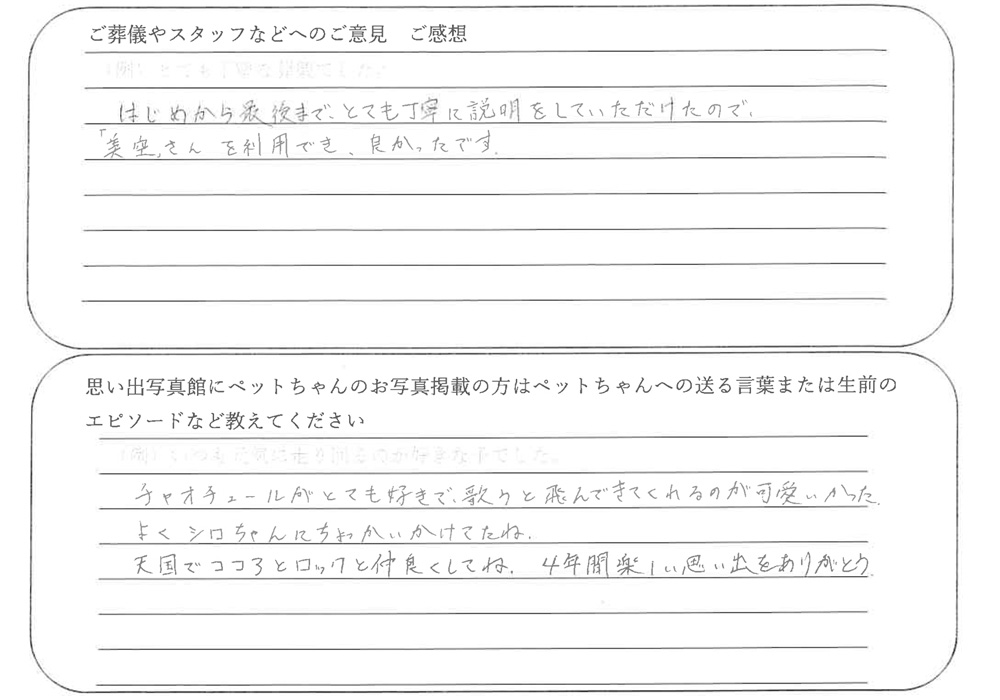 ご葬儀やスタッフなどへのご意見　ご感想
（例）とても丁寧な葬儀でした。
はじめから最後まで、とても丁寧に説明をしていただけたので、
「美空」さん を利用でき、良かったです。
思い出写真館にペットちゃんのお写真掲載の方はペットちゃんへの送る言葉または生前の
エピソードなど教えてください
（例）いつも元気に走り回るのが好きな子でした。
チャオチュールがとても好きで、歌うと飛んできてくれるのが可愛いかった。
よくシロちゃんにちょっかいかけてたね。
天国でココろとロックと仲良くしてね。 4年間楽しい思い出をありがとう。